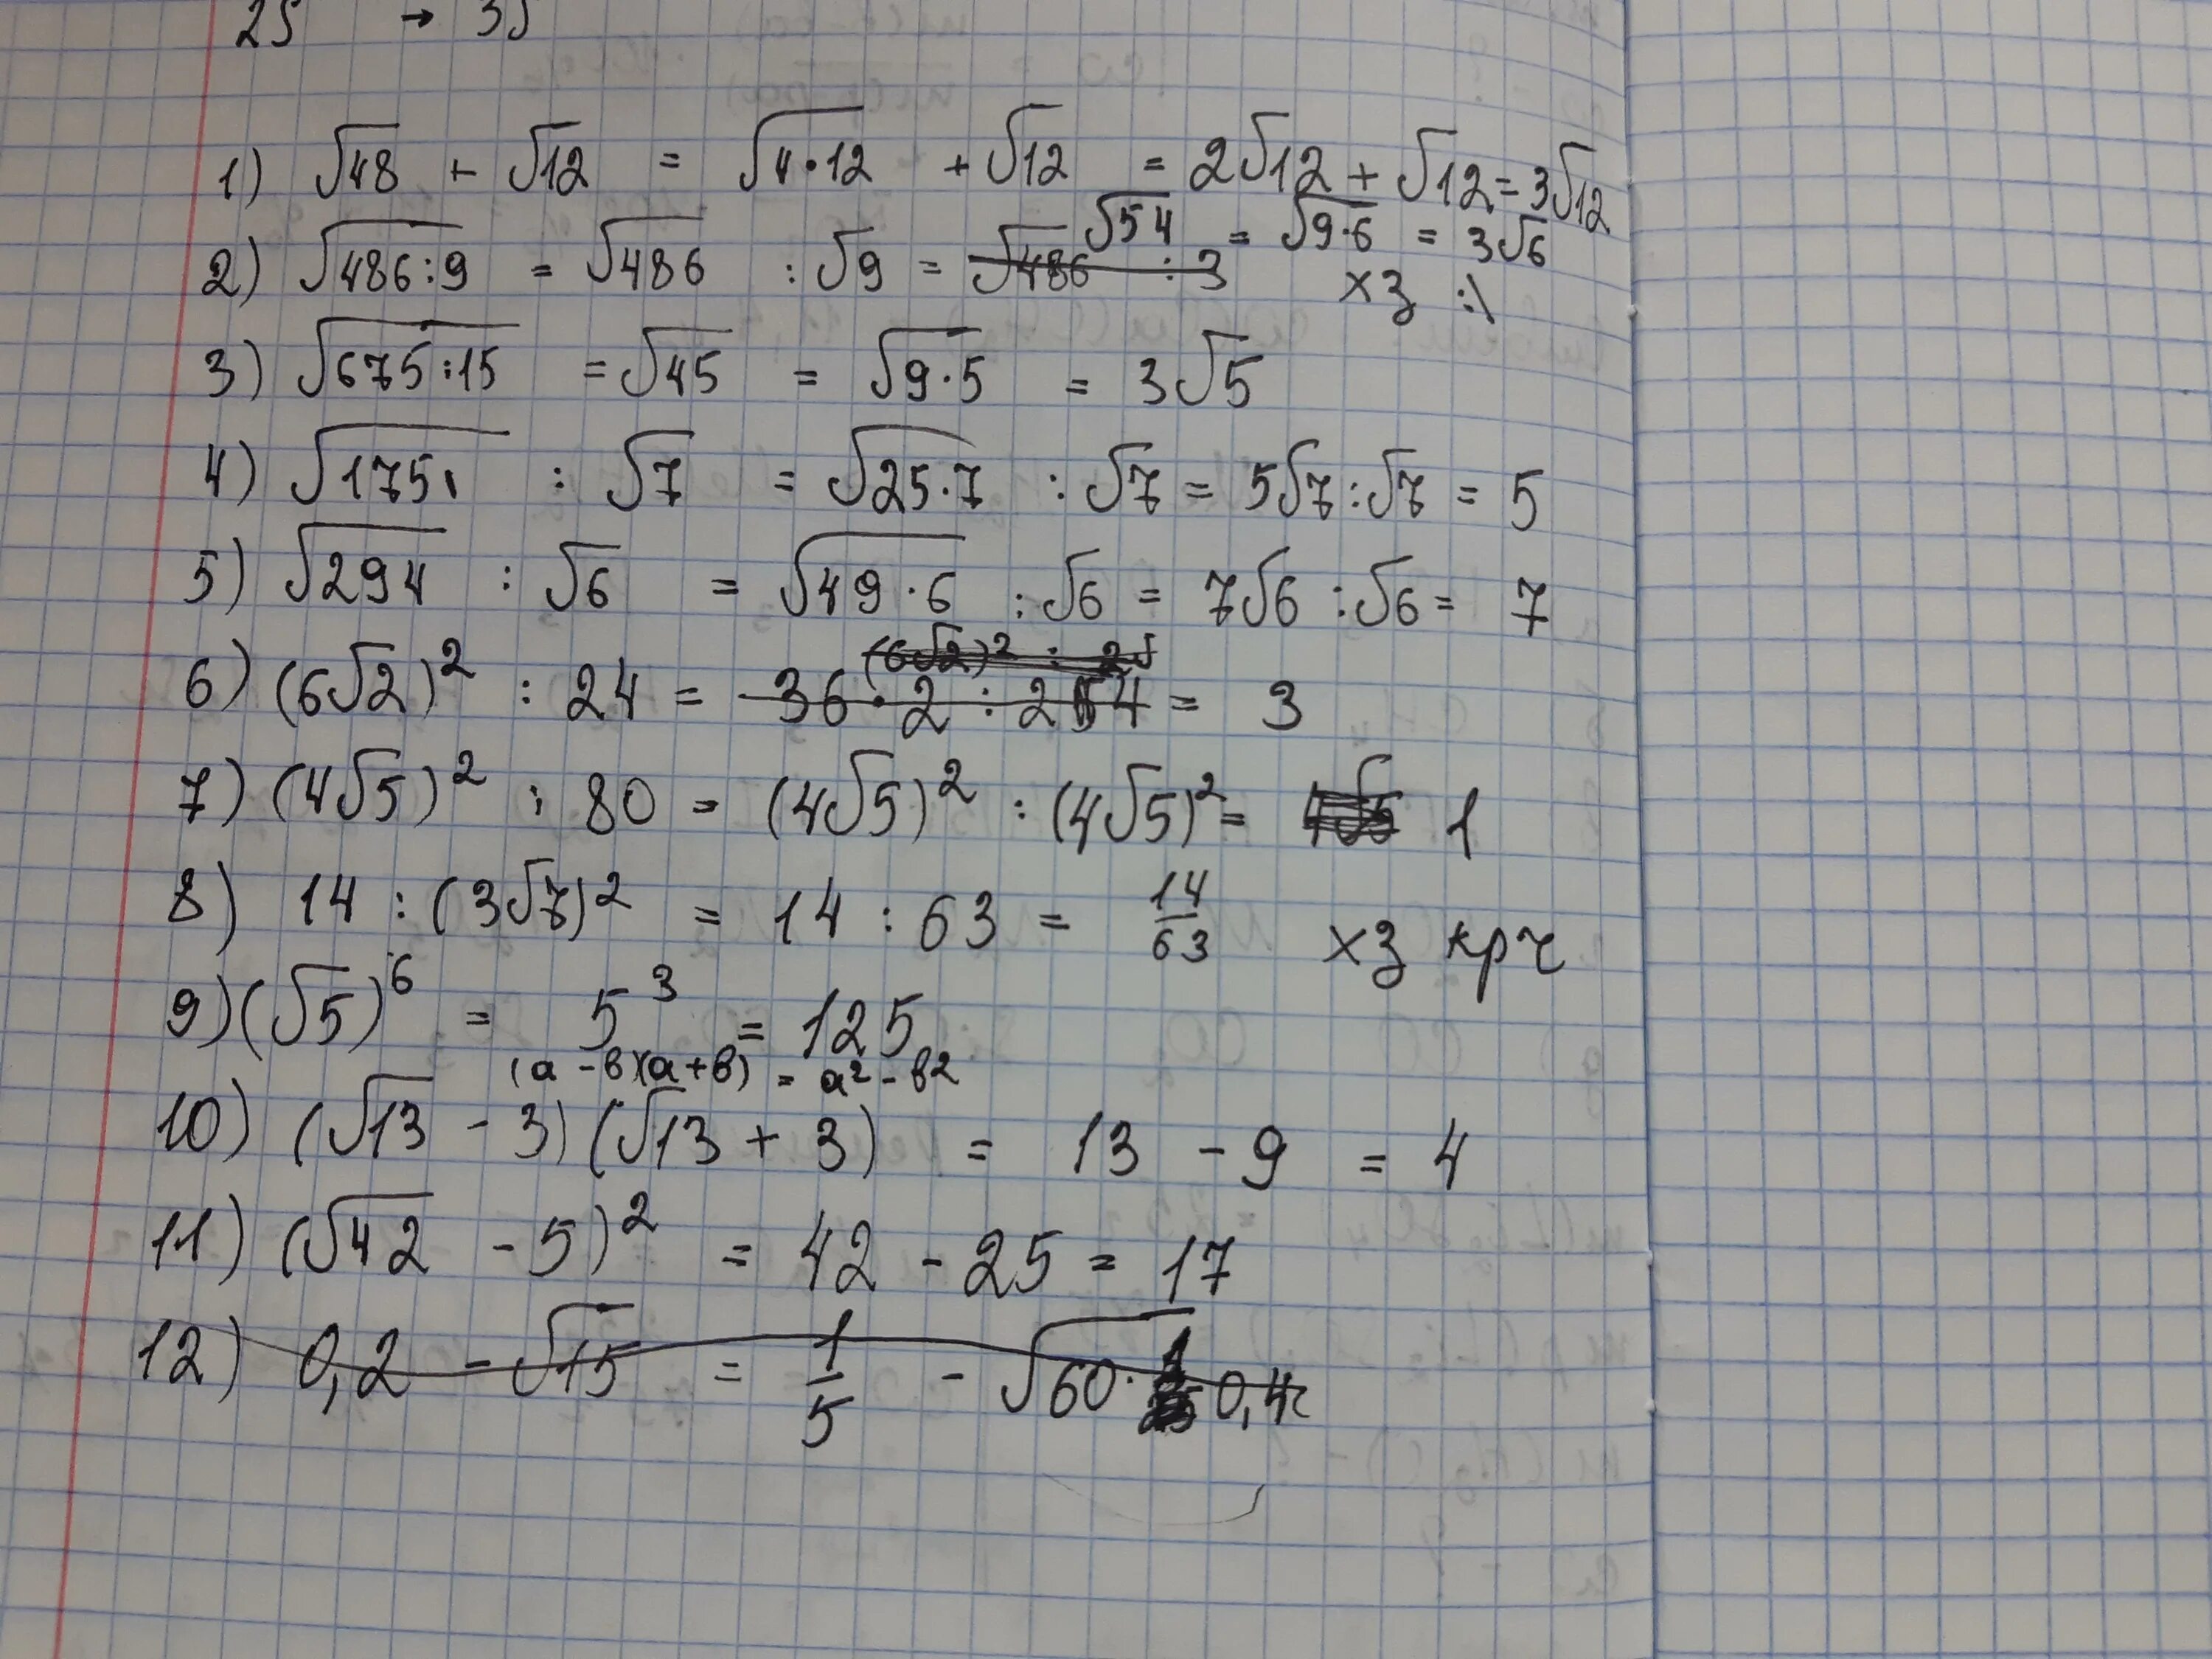 2S → 3S
1) √48 + √12 = √4·12 + √12 = 2√12 + √12 = 3√12
2) √486:9 = √486 : √9 = √486 : 3 √54 = √9·6 = 3√6
хз :\
3) √675:15 = √45 = √9·5 = 3√5
4) √175 : √7 = √25·7 : √7 = 5√7:√7 = 5
5) √294 : √6 = √49·6 : √6 = 7√6 :√6 = 7
(6√2)² : 2√
6) (6√2)² : 24 = 36·2 : 24 = 3
7) (4√5)² : 80 = (4√5)² : (4√5)² = 4√5 1
8) 14 : (3√7)² = 14 : 63 = 14/63 хз крч
9) (√5)⁶ = 5³ = 125
(a-b)(a+b) = a²-b²
10) (√13 - 3)(√13 + 3) = 13 - 9 = 4
11) (√42 - 5)² = 42 - 25 = 17
12) 0,2 - √15 = 1/5 - √60· 0,4